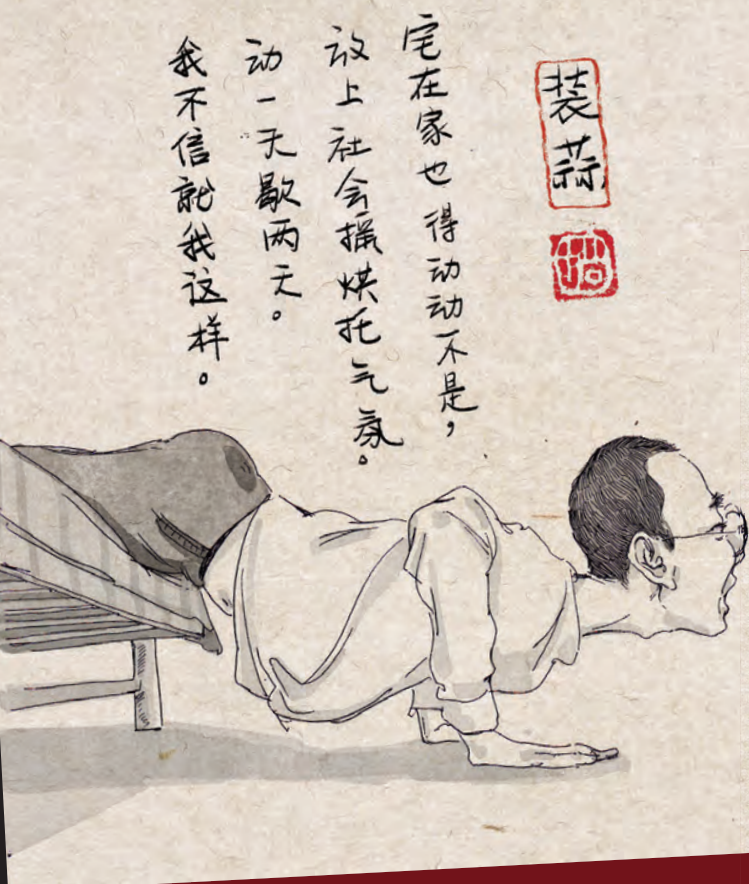 装蒜
宅在家也得动动不是，
放上社会摇烘托气氛。
动一天歇两天。
我不信就我这样。